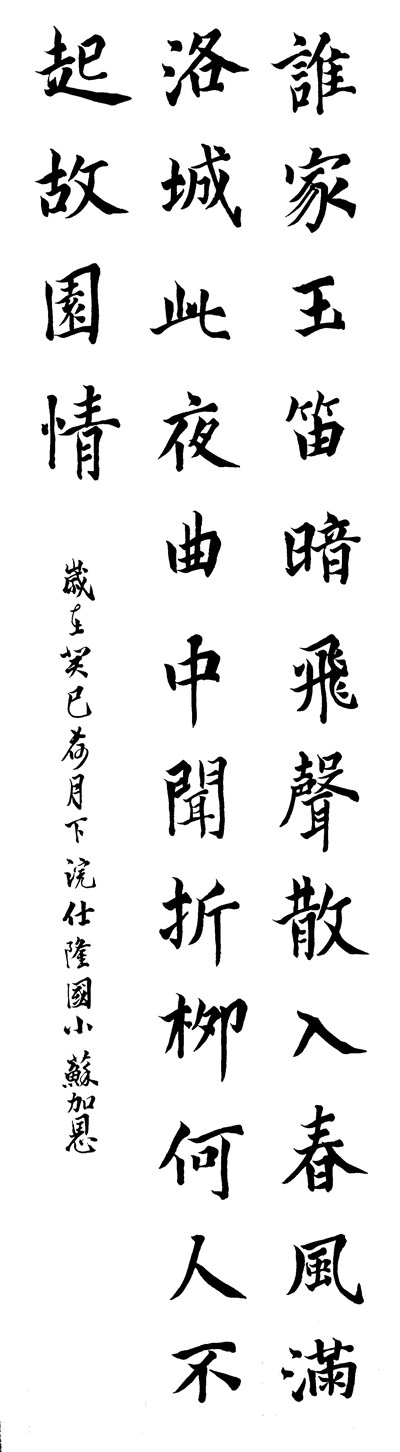 誰家玉笛暗飛聲散入春風滿
洛城此夜曲中聞折柳何人不
起故園情
歲在癸巳荷月下浣仕隆國小蘇加恩